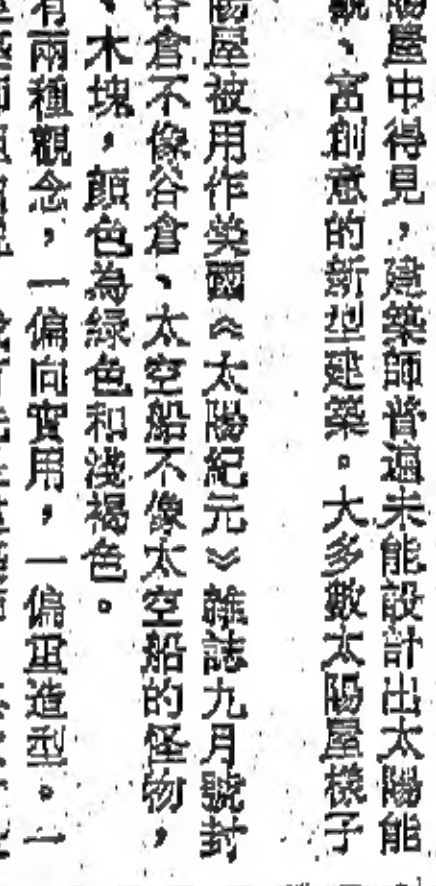 陽屋中得見，建築師普遍未能設計出太陽能
觀、富創意的新型建築。大多數太陽屋樣子
陽屋被用作美國《太陽紀元》雜誌九月號封
谷倉不像谷倉、太空船不像太空船的怪物，
、木塊，顏色為綠色和淺褐色。
有兩種觀念，一偏向實用，一偏重造型。一